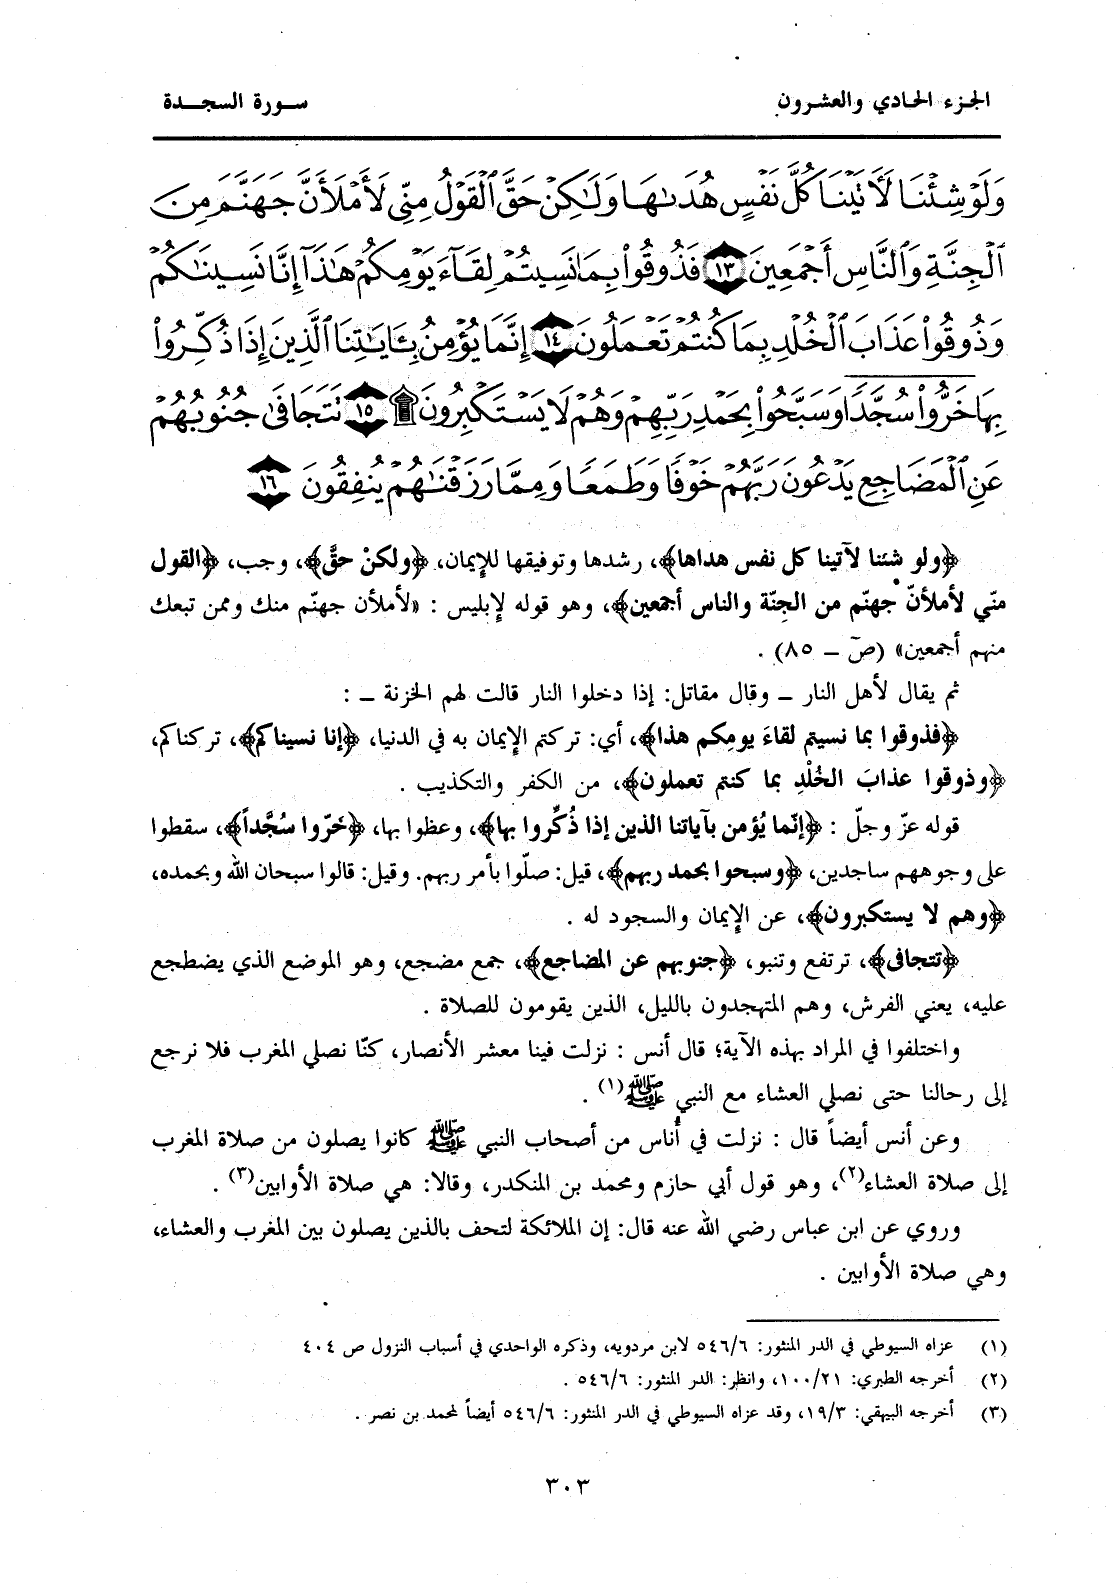 الجزء الحادي والعشرون
سورة السجدة
وَلَوْ شِئْنَا لَآتَيْنَا كُلَّ نَفْسٍ هُدَىٰهَا وَلَٰكِنْ حَقَّ ٱلْقَوْلُ مِنِّي لَأَمْلَأَنَّ جَهَنَّمَ مِنَ
ٱلْجِنَّةِ وَٱلنَّاسِ أَجْمَعِينَ ١٣ فَذُوقُوا۟ بِمَا نَسِيتُمْ لِقَآءَ يَوْمِكُمْ هَٰذَآ إِنَّا نَسِينَٰكُمْ
وَذُوقُوا۟ عَذَابَ ٱلْخُلْدِ بِمَا كُنتُمْ تَعْمَلُونَ ١٤ إِنَّمَا يُؤْمِنُ بِـَٔايَٰتِنَا ٱلَّذِينَ إِذَا ذُكِّرُوا۟
بِهَا خَرُّوا۟ سُجَّدًا وَسَبَّحُوا۟ بِحَمْدِ رَبِّهِمْ وَهُمْ لَا يَسْتَكْبِرُونَ ۩ ١٥ تَتَجَافَىٰ جُنُوبُهُمْ
عَنِ ٱلْمَضَاجِعِ يَدْعُونَ رَبَّهُمْ خَوْفًا وَطَمَعًا وَمِمَّا رَزَقْنَٰهُمْ يُنفِقُونَ ١٦
﴿ولو شئنا لآتينا كل نفس هداها﴾، رشدها وتوفيقها للإيمان، ﴿ولكنْ حقَّ﴾، وجب، ﴿القول
منّي لأملأنّ جهنّم من الجِنّة والناس أجمعين﴾، وهو قوله لإبليس : «لأملأن جهنّم منك وممن تبعك
منهم أجمعين» (صَ ــ ٨٥) .
ثم يقال لأهل النار ــ وقال مقاتل: إذا دخلوا النار قالت لهم الخزنة ــ :
﴿فذوقوا بما نسيتم لقاءَ يومِكم هذا﴾، أي: تركتم الإيمان به في الدنيا، ﴿إنا نسيناكم﴾، تركناكم،
﴿وذوقوا عذابَ الخُلْدِ بما كنتم تعملون﴾، من الكفر والتكذيب .
قوله عزّ وجلّ : ﴿إنّما يُؤمن بآياتنا الذين إذا ذُكِّروا بها﴾، وعظوا بها، ﴿خَرّوا سُجَّداً﴾، سقطوا
على وجوههم ساجدين، ﴿وسبحوا بحمد ربهم﴾، قيل: صلّوا بأمر ربهم. وقيل: قالوا سبحان الله وبحمده،
﴿وهم لا يستكبرون﴾، عن الإيمان والسجود له .
﴿تتجافى﴾، ترتفع وتنبو، ﴿جنوبهم عن المضاجع﴾، جمع مضجع، وهو الموضع الذي يضطجع
عليه، يعني الفرش، وهم المتهجدون بالليل، الذين يقومون للصلاة .
واختلفوا في المراد بهذه الآية؛ قال أنس : نزلت فينا معشر الأنصار، كنّا نصلي المغرب فلا نرجع
إلى رحالنا حتى نصلي العشاء مع النبي ﷺ(١) .
وعن أنس أيضاً قال : نزلت في أُناس من أصحاب النبي ﷺ كانوا يصلون من صلاة المغرب
إلى صلاة العشاء(٢)، وهو قول أبي حازم ومحمد بن المنكدر، وقالا: هي صلاة الأوابين(٣) .
وروي عن ابن عباس رضي الله عنه قال: إن الملائكة لتحف بالذين يصلون بين المغرب والعشاء،
وهي صلاة الأوابين .
(١) عزاه السيوطي في الدر المنثور: ٥٤٦/٦ لابن مردويه، وذكره الواحدي في أسباب النزول ص ٤٠٤
(٢) أخرجه الطبري: ١٠٠/٢١، وانظر: الدر المنثور: ٥٤٦/٦ .
(٣) أخرجه البيهقي: ١٩/٣، وقد عزاه السيوطي في الدر المنثور: ٥٤٦/٦ أيضاً لمحمد بن نصر .
٣٠٣